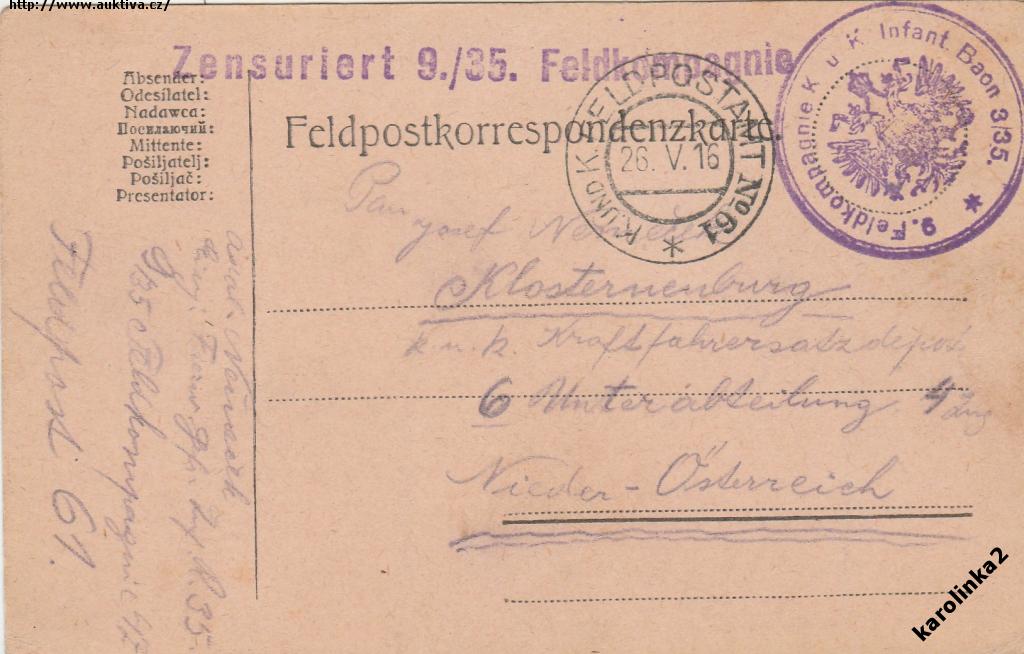 http://www.auktiva.cz/
Zensuriert 9./35. Feldkompagnie
Absender:
Odesílatel:
Nadawca:
Посилаючий:
Mittente:
Pošiljatelj:
Pošiljač:
Presentator:
Feldpostkorrespondenzkarte.
K. UND K. FELDPOSTAMT No 61
26. V. 16
9. Feldkompagnie K. u. K. Infant. Baon 3/35.
Pan
Josef
Klosterneuburg
k. u. k. Kraftfahrersatzdepot
6 Unterabteilung 4 Zug
Nieder-Österreich
I. R. 35
9/35 Feldkompagnie
Feldpost 61.
karolinka2